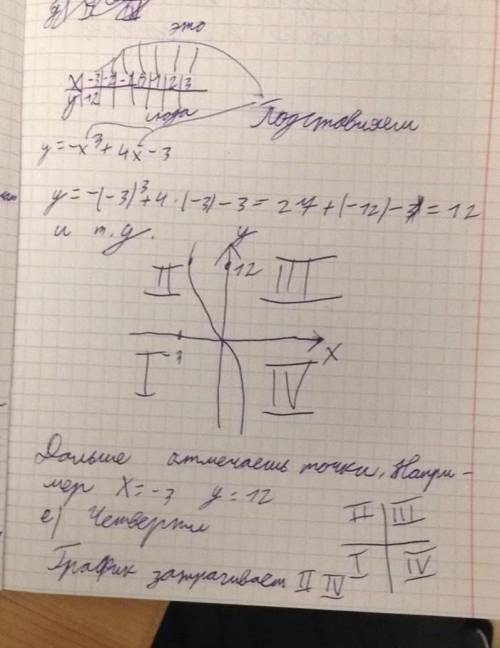 это
x | -3 | -2 | -1 | 0 | 1 | 2 | 3
y | 12
сюда
Подставляем
y = -x³ + 4x - 3
y = -(-3)³ + 4 · (-3) - 3 = 27 + (-12) - 3 = 12
и т.д.
y
II 12 III
-3 x
I IV
Дальше отмечаешь точки, Напри-
мер x = -3 y = 12
е) Четвертки
II III
График затрачивает II IV
I IV